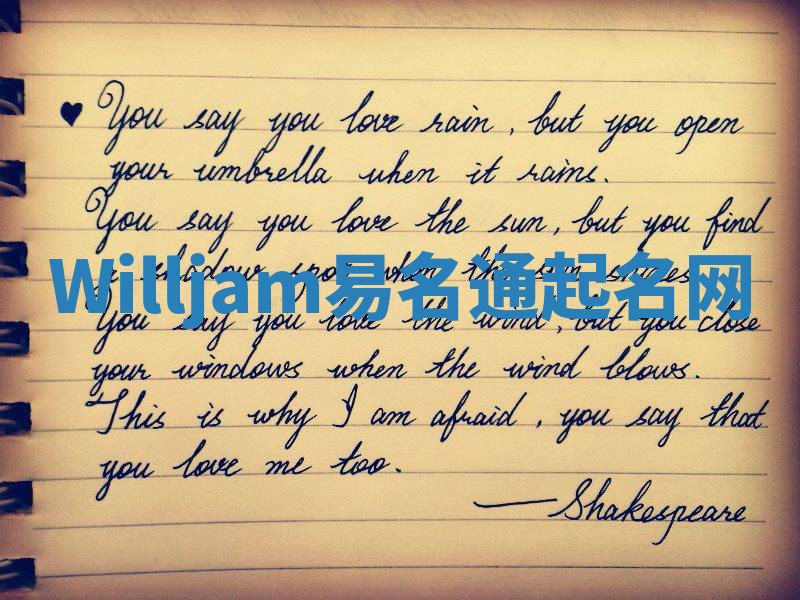 ♥ You say you love rain, but you open
your umbrella when it rains.
You say you love the sun, but you find
a shadow spot when the sun shines
Willjam易名通起名网
You say you love the wind, but you close
your windows when the wind blows.
This is why I am afraid, you say that
you love me too.
— Shakespeare